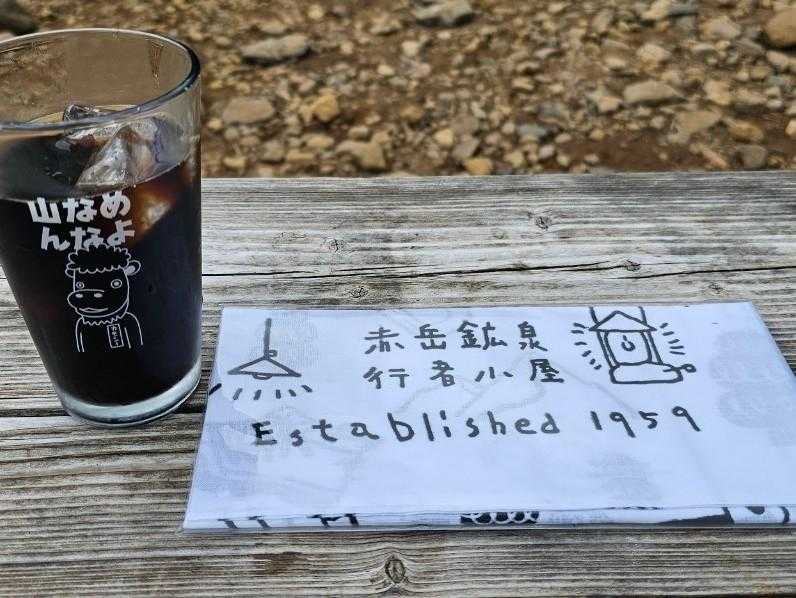 山なめ
んなよ
赤岳鉱泉
行者小屋
Established 1959